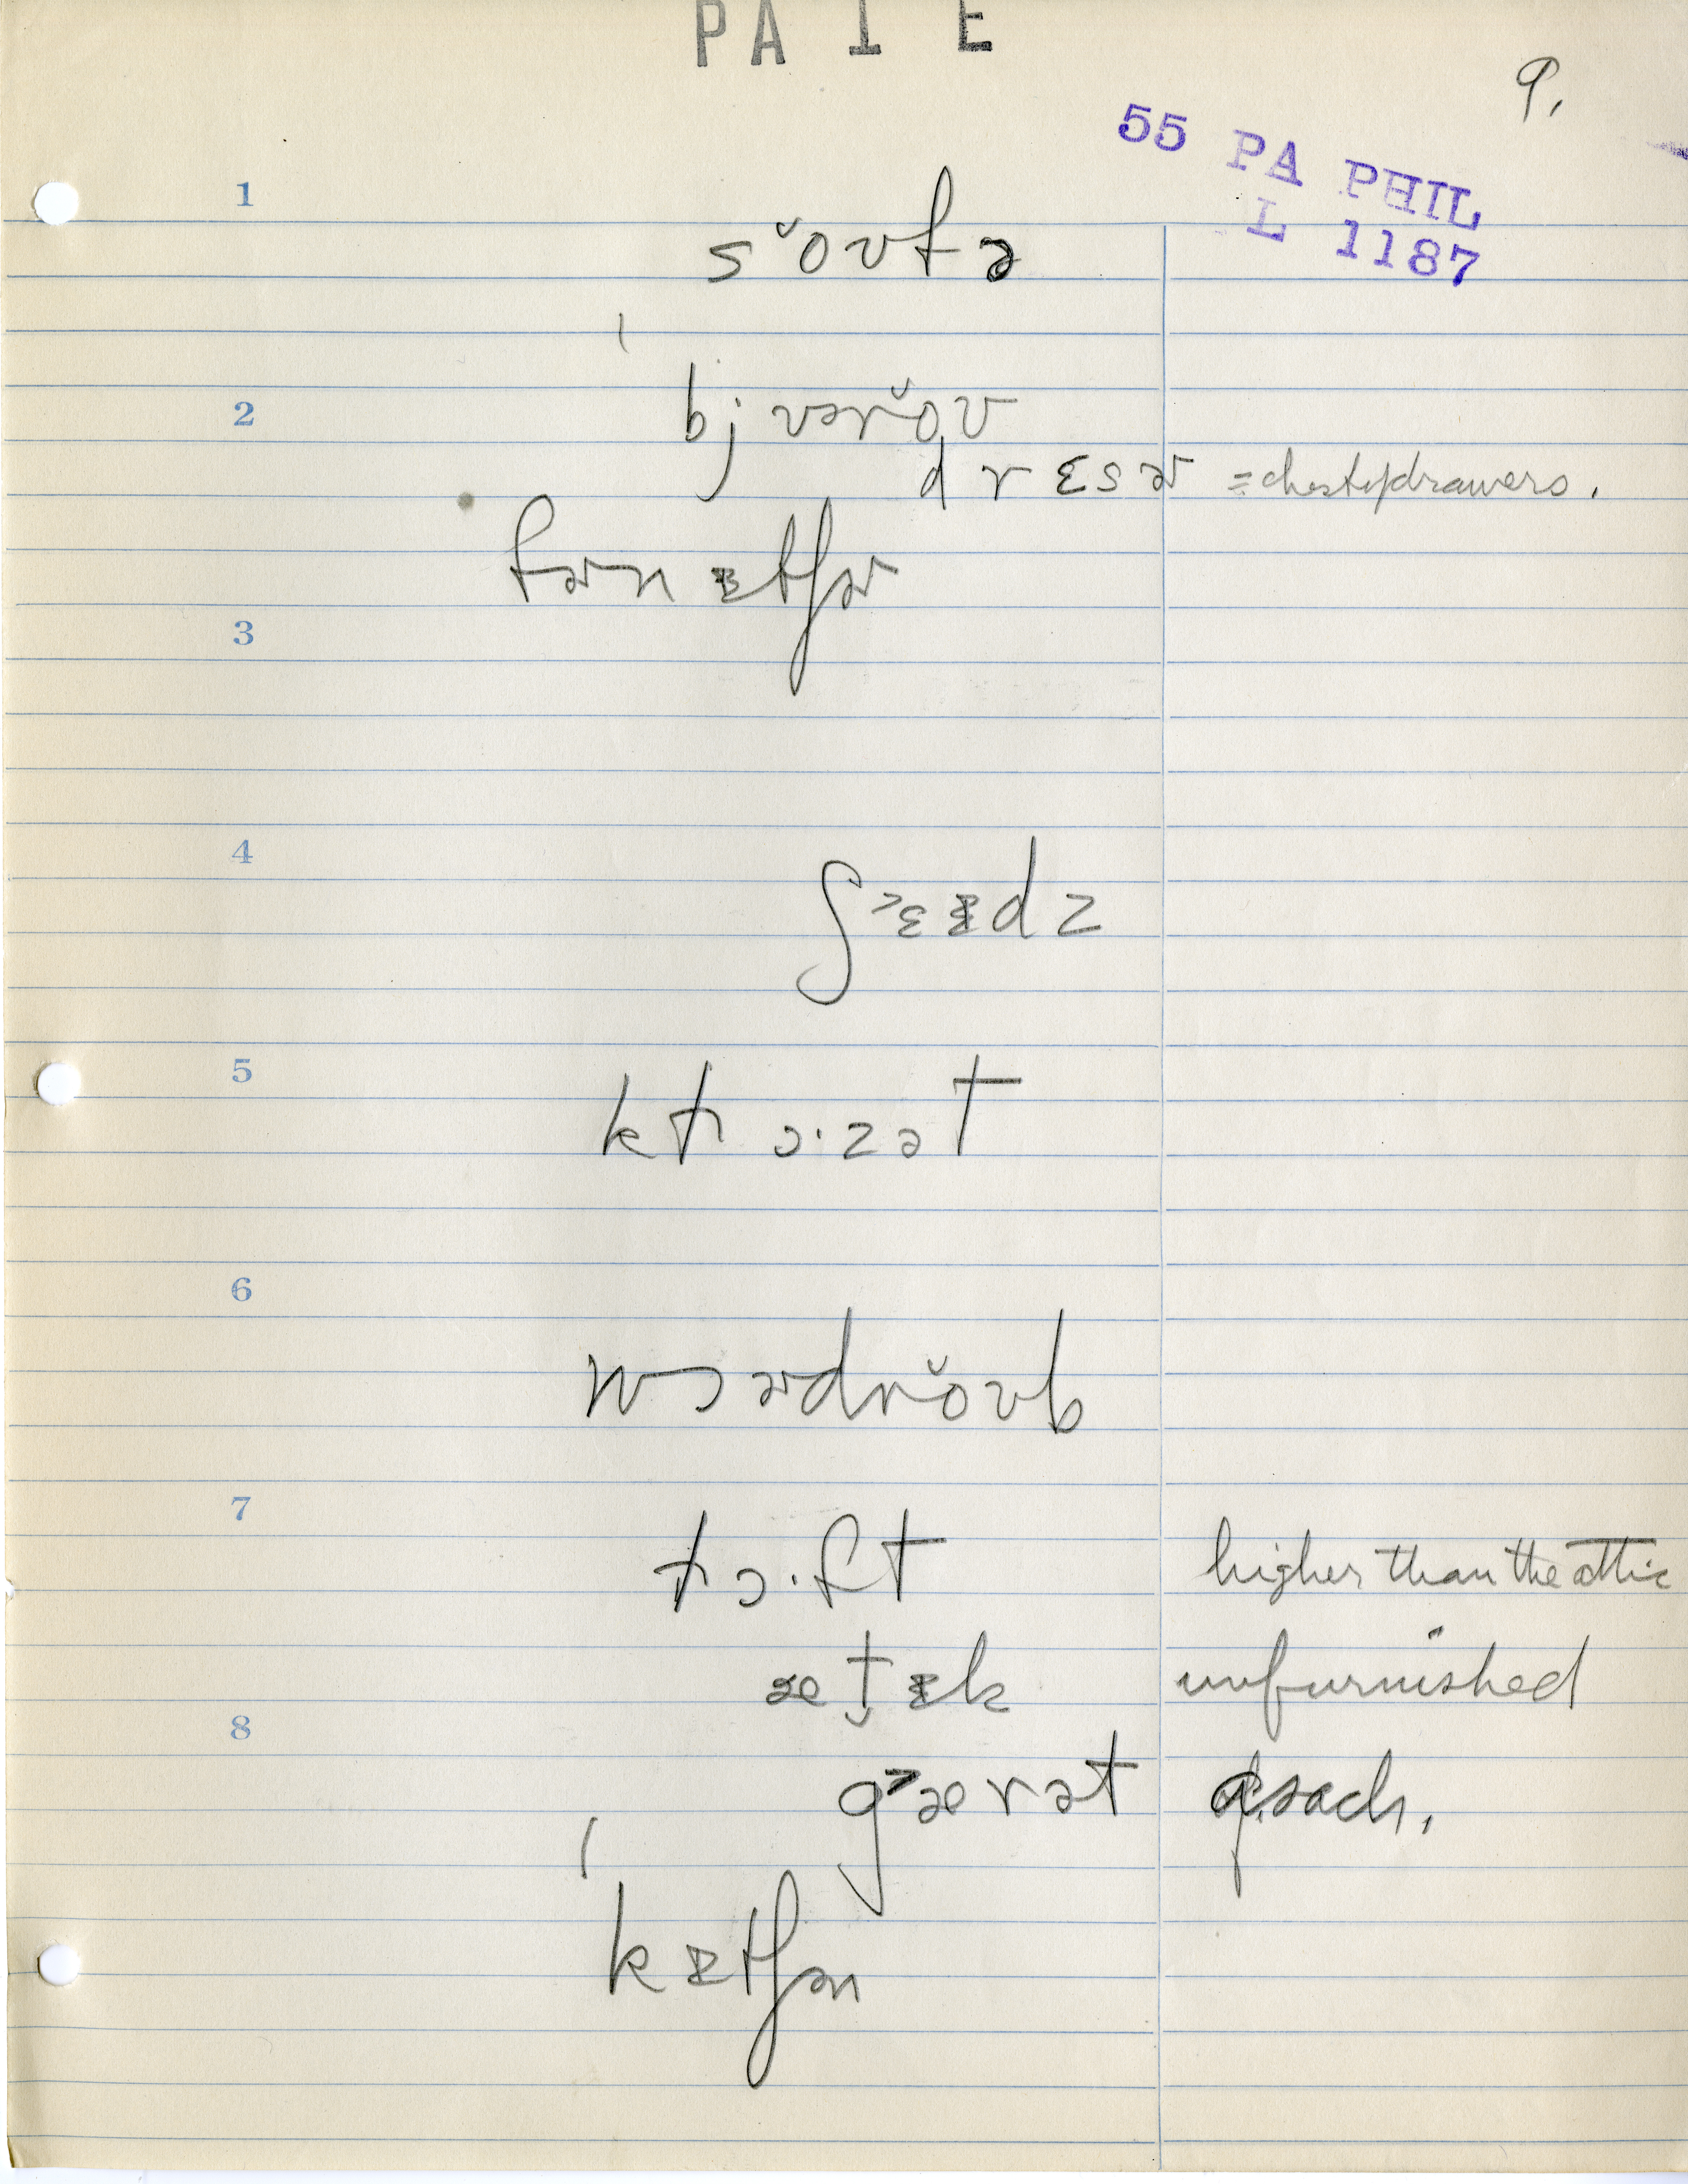 PA 1 E
9.
55 PA PHIL
L 1187
1
sŏʊfə
2
bjʊərŏʊ
drɛsɚ = chest of drawers.
fɚnɪtʃɚ
3
4
ʃ˃ɛɪdz
5
kɫɔ·zət
6
wɔɚdrŏʊb
7
ɫɔ·ft higher than the attic
æt̬ɪk unfurnished
8
g˃ærət
kɪtʃən